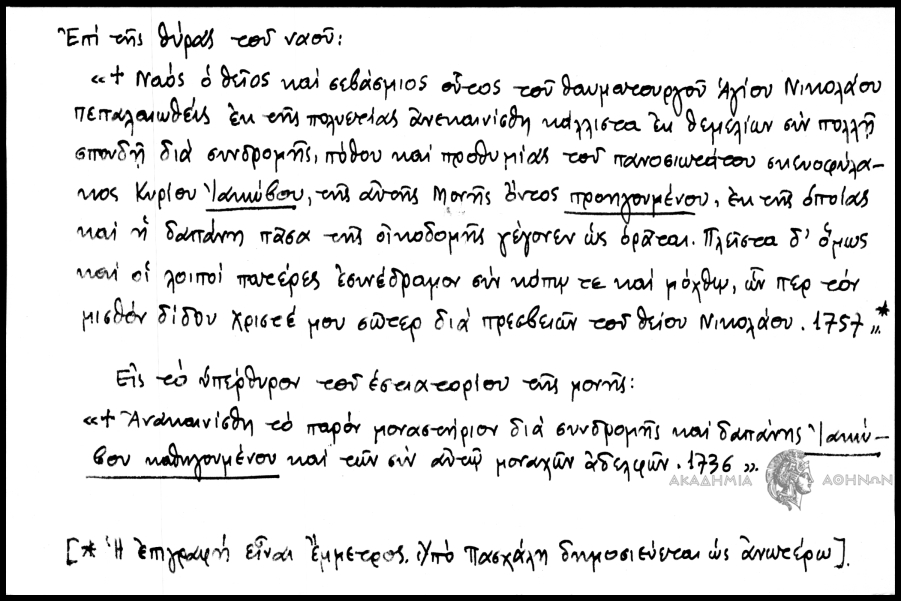 Ἐπί τῆς θύρας τοῦ ναοῦ:
«+ Ναός ὁ θεῖος καί σεβάσμιος οὗτος τοῦ θαυματουργοῦ Ἁγίου Νικολάου
πεπαλαιωθείς ἐκ τῆς πολυετίας ἀνεκαινίσθη κάλλιστα ἐκ θεμελίων σύν πολλῇ
σπουδῇ διά συνδρομῆς, πόθου καί προθυμίας τοῦ πανοσιωτάτου σκευοφύλα-
κος Κυρίου Ἰακώβου, τῆς αὐτῆς Μονῆς ὄντος προηγουμένου, ἐκ τῆς ὁποίας
καί ἡ δαπάνη πᾶσα τῆς οἰκοδομῆς γέγονεν ὡς ὁρᾶται. Πλεῖστα δ' ὅμως
καί οἱ λοιποί πατέρες ἐσυνέδραμον σύν κόπῳ τε καί μόχθῳ, ὧν περ τόν
μισθόν δίδου χριστέ μου σῶτερ διά πρεσβειῶν τοῦ θείου Νικολάου. 1757».*
Εἰς τό ὑπέρθυρον τοῦ ἑστιατορίου τῆς μονῆς:
«+ Ἀνακαινίσθη τό παρόν μοναστήριον διά συνδρομῆς καί δαπάνης Ἰακώ-
βου καθηγουμένου καί τῶν σύν αὐτῷ μοναχῶν ἀδελφῶν. 1736».
ΑΚΑΔΗΜΙΑ ΑΘΗΝΩΝ
[* Ἡ ἐπιγραφή εἶναι ἔμμετρος. Ὑπό Πασχάλη δημοσιεύεται ὡς ἀνωτέρω].